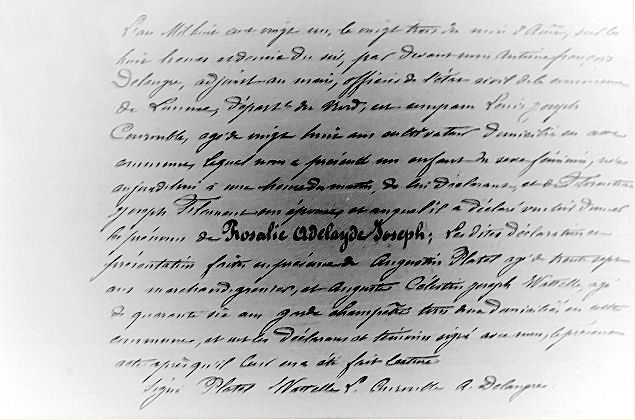 L'an Mil huit cent vingt un, le vingt trois du mois d'Août, sur les
huit heures et demie du soir, par devant nous Antoine françois
Delangre, adjoint au maire, officier de l'état civil de la commune
de département du Nord, est comparu Louis Joseph
Courouble, agé de vingt huit ans cultivateur domicilié en cette
commune, lequel nous a présenté un enfant du sexe féminin, née
aujourd'hui à une heure du matin, de lui déclarant, et de Florentine
Joseph son épouse, et auquel il a déclaré vouloir donner
les prénoms de Rosalie Adelayde Joseph; Les dites déclaration et
présentation faites en présence de Augustin Platel agé de trente sept
ans marchand grenier, et Auguste Célestin joseph Wattelle, agé
de quarante six ans garde champêtre tous deux domiciliés en cette
commune, et ont les déclarant et témoins signé avec nous le présent
acte après qu'il leur en a été fait lecture
Signé Platel Wattelle L. Courouble A. Delangre